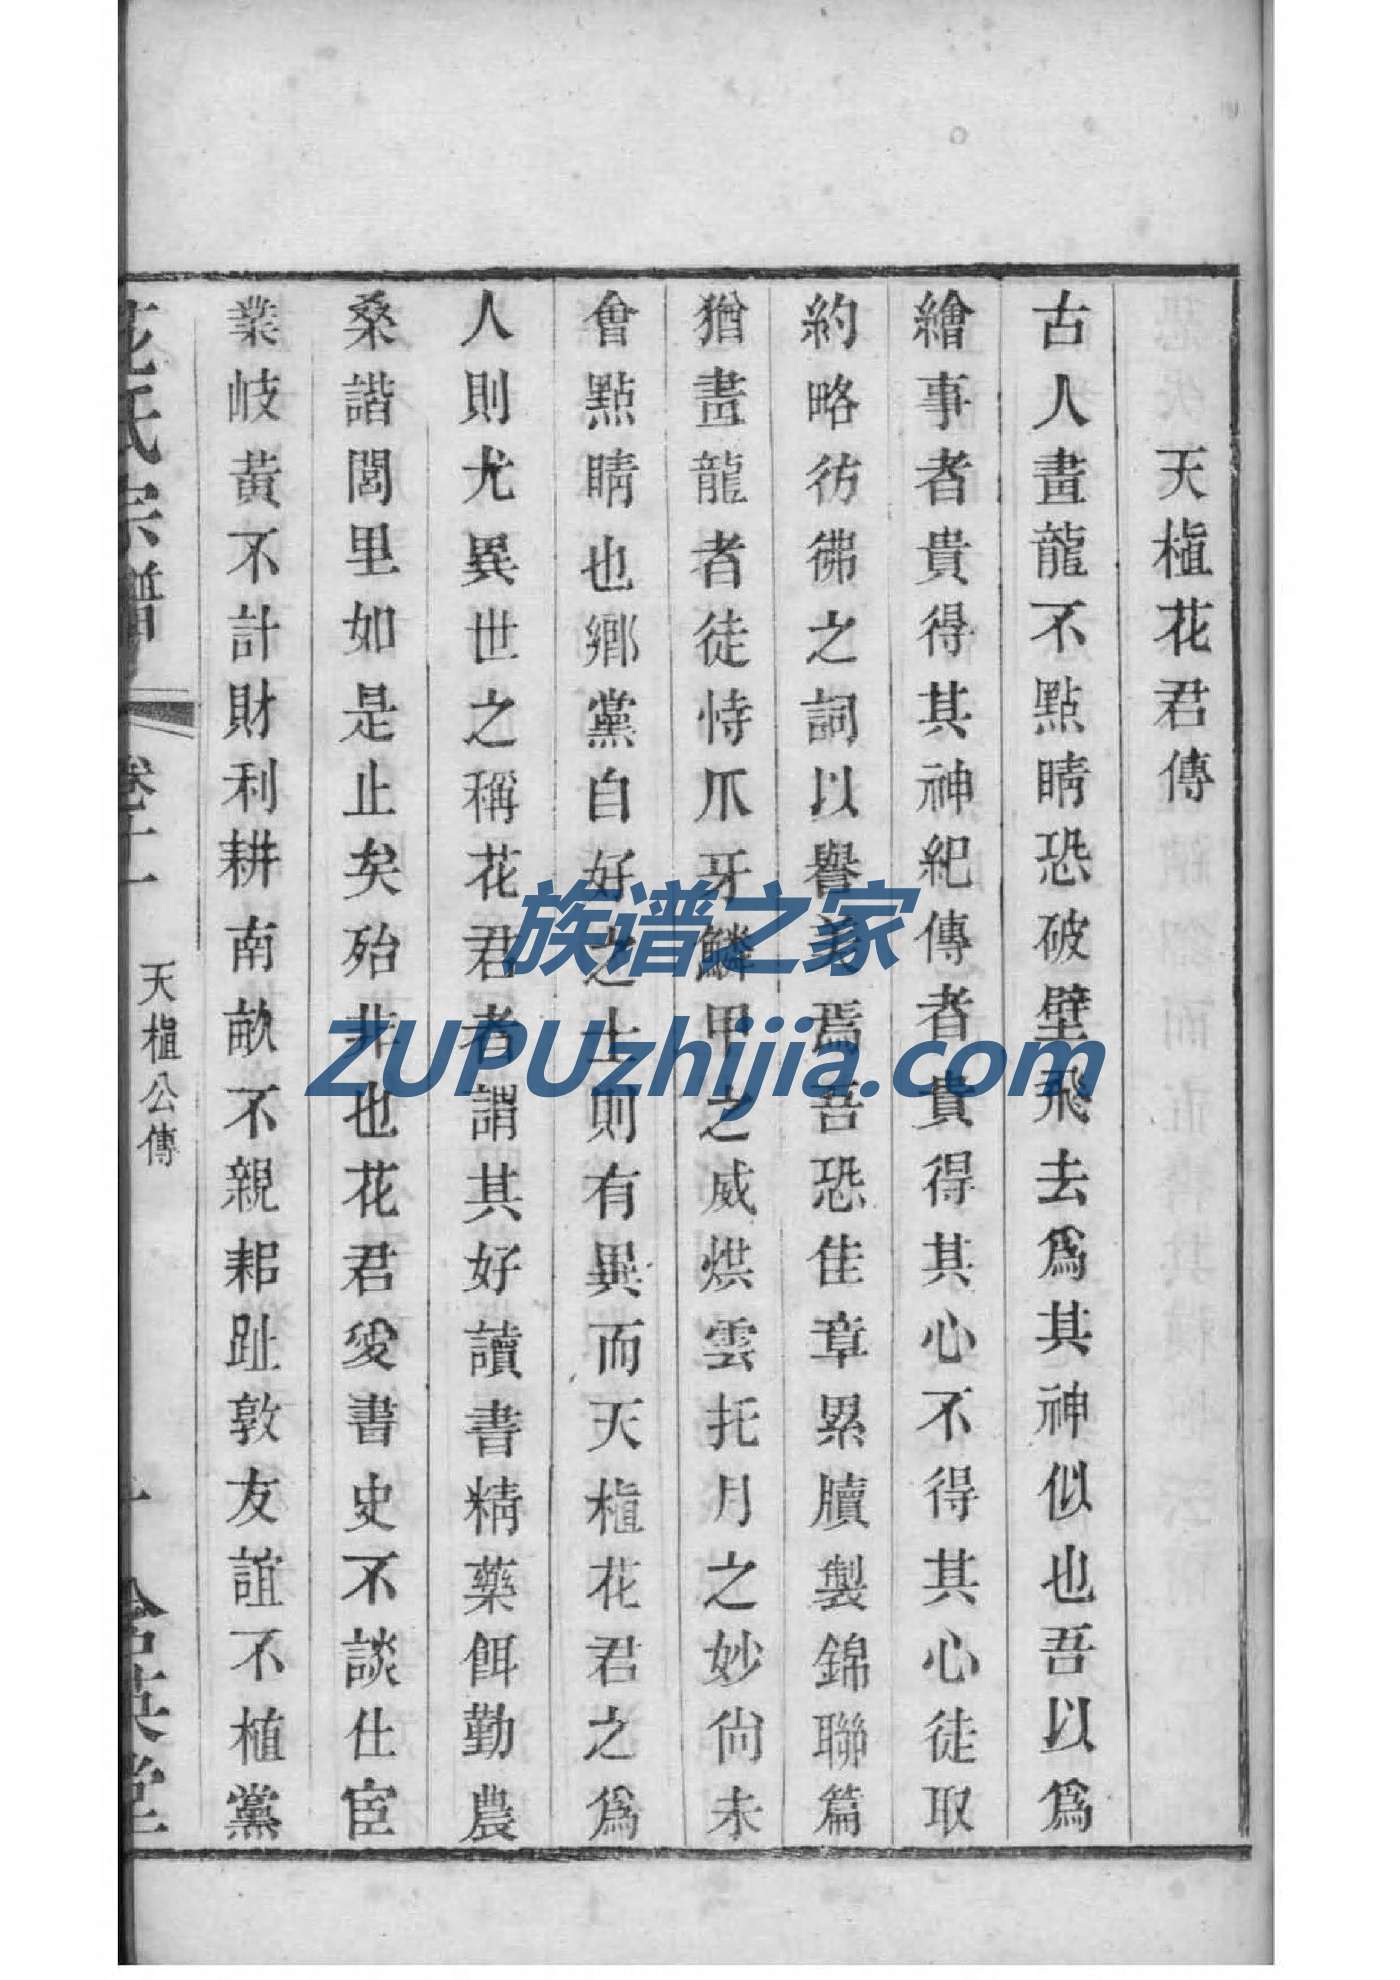 天植花君傳
古人畫龍不點睛恐破壁飛去爲其神似也吾以爲
繪事者貴得其神紀傳者貴得其心不得其心徒取
約略彷彿之詞以譽美焉吾恐佳章累牘製錦聯篇
猶畫龍者徒恃爪牙鱗甲之威烘雲托月之妙尙未
會點睛也鄉黨自好之士則有異而天植花君之爲
人則尤異世之稱花君者謂其好讀書精藥餌勤農
桑諧閭里如是止矣殆非也花君愛書史不談仕宦
業岐黃不計財利耕南畝不親耜趾敦友誼不植黨
花氏宗譜
卷十一
天植公傳
一
含英堂
族谱之家
ZUPUzhijia.com